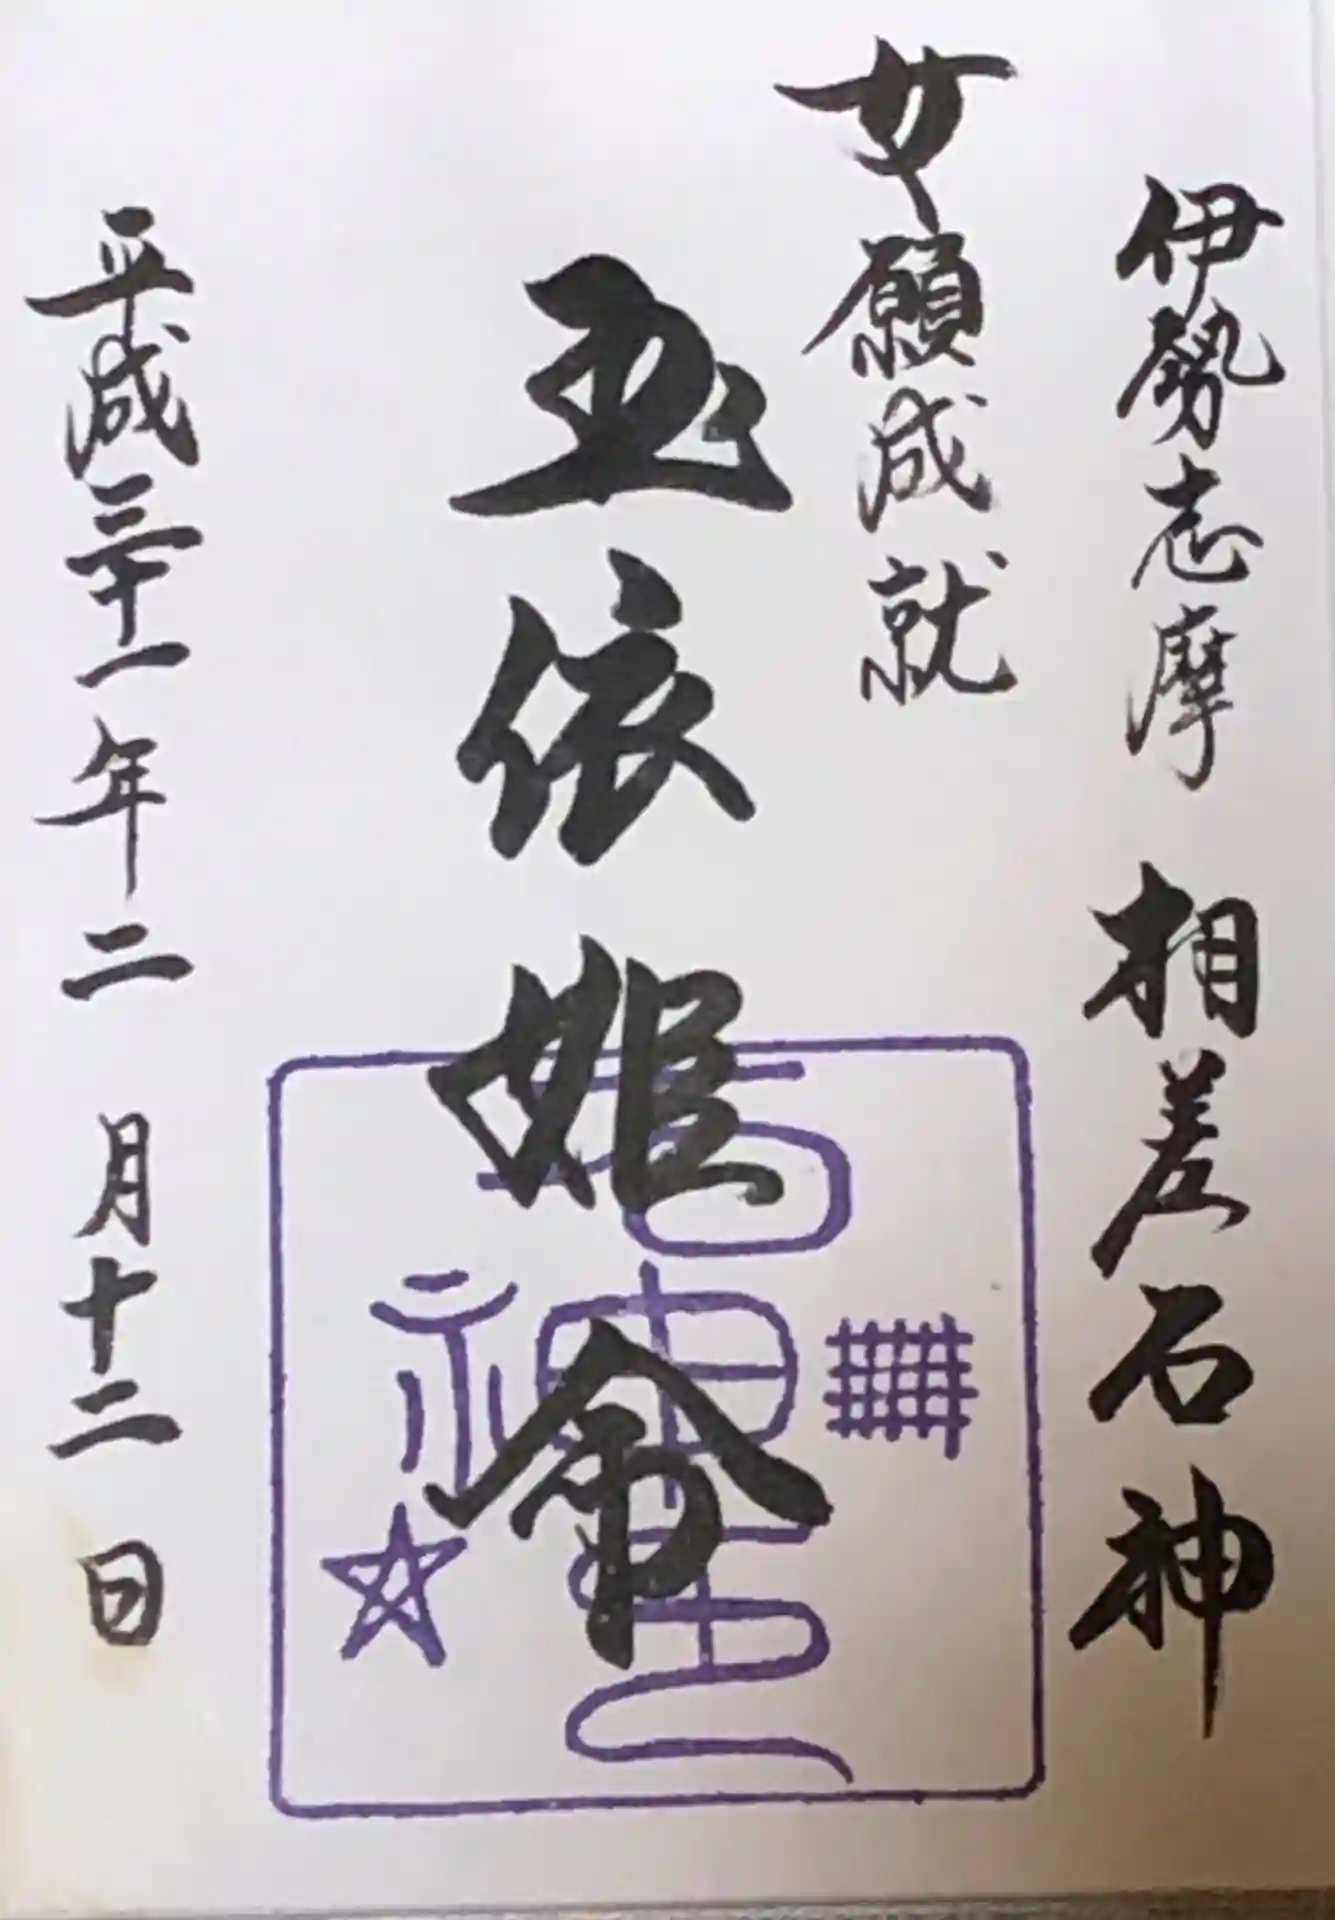 伊勢志摩 相差石神
女願成就
玉依姫命
平成三十一年二月十二日
石神